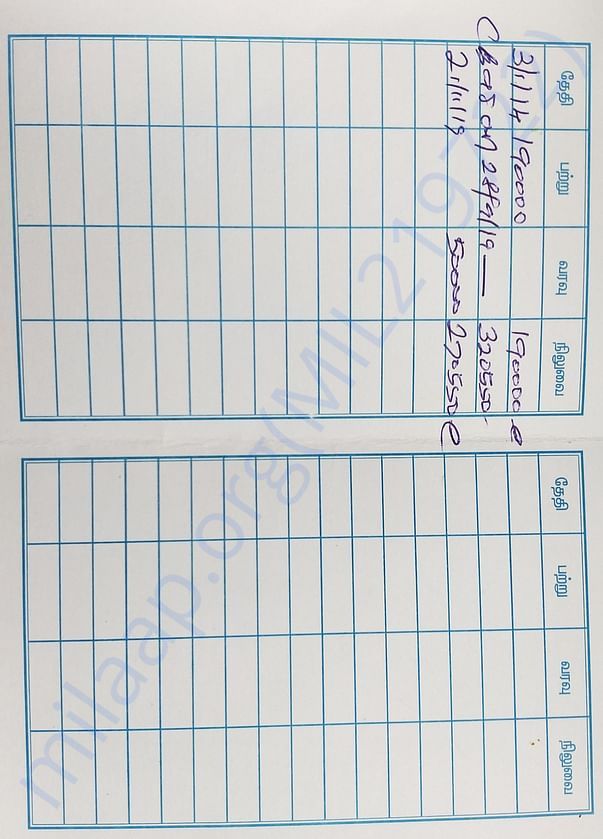 தேதி பற்று வரவு நிலுவை
3/1/14 190000 190000
28/9/19 — 320550
21/11/19 50000 270550
தேதி பற்று வரவு நிலுவை
milaap.org(MIL219722)